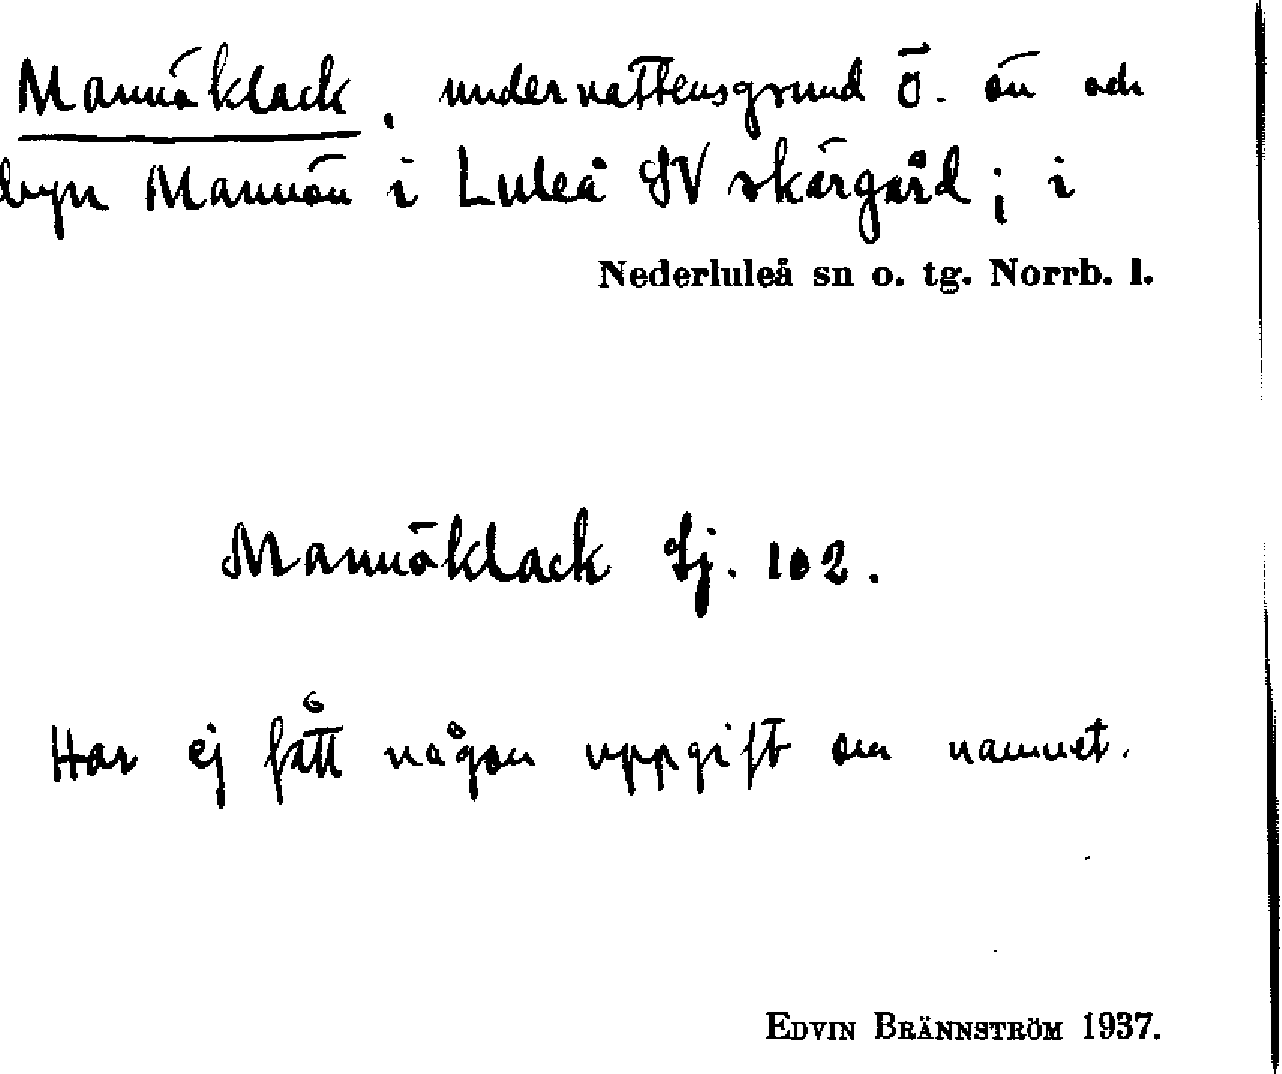 Mannöklack, undervattensgrund Ö. ön och
byn Mannön i Luleå SV skärgård; i
Nederluleå sn o. tg. Norrb. l.
Mannöklack Sj. 102.
Har ej fått någon uppgift om namnet.
EDVIN BRÄNNSTRÖM 1937.